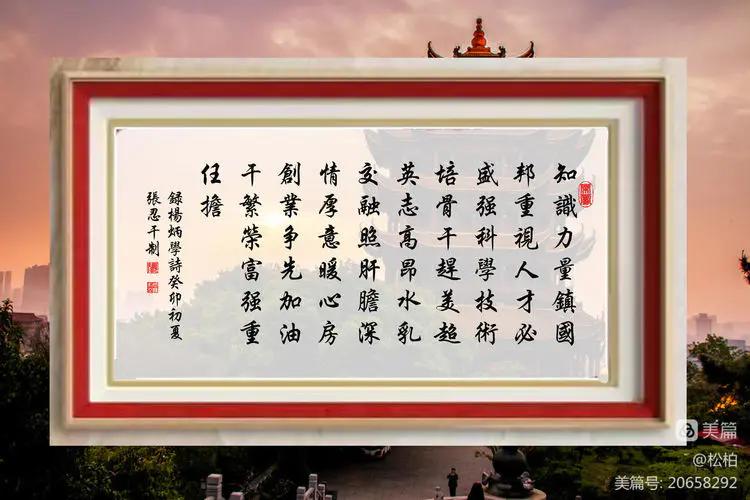 知識力量鎮國
邦重視人才必
盛强科學技術
培骨干趕美超
英志高昂水乳
交融照肝膽深
情厚意暖心房
創業争先加油
干繁榮富强重
任擔
録楊炳學詩癸卯初夏
張忍干制
美篇
@松柏
美篇号: 20658292